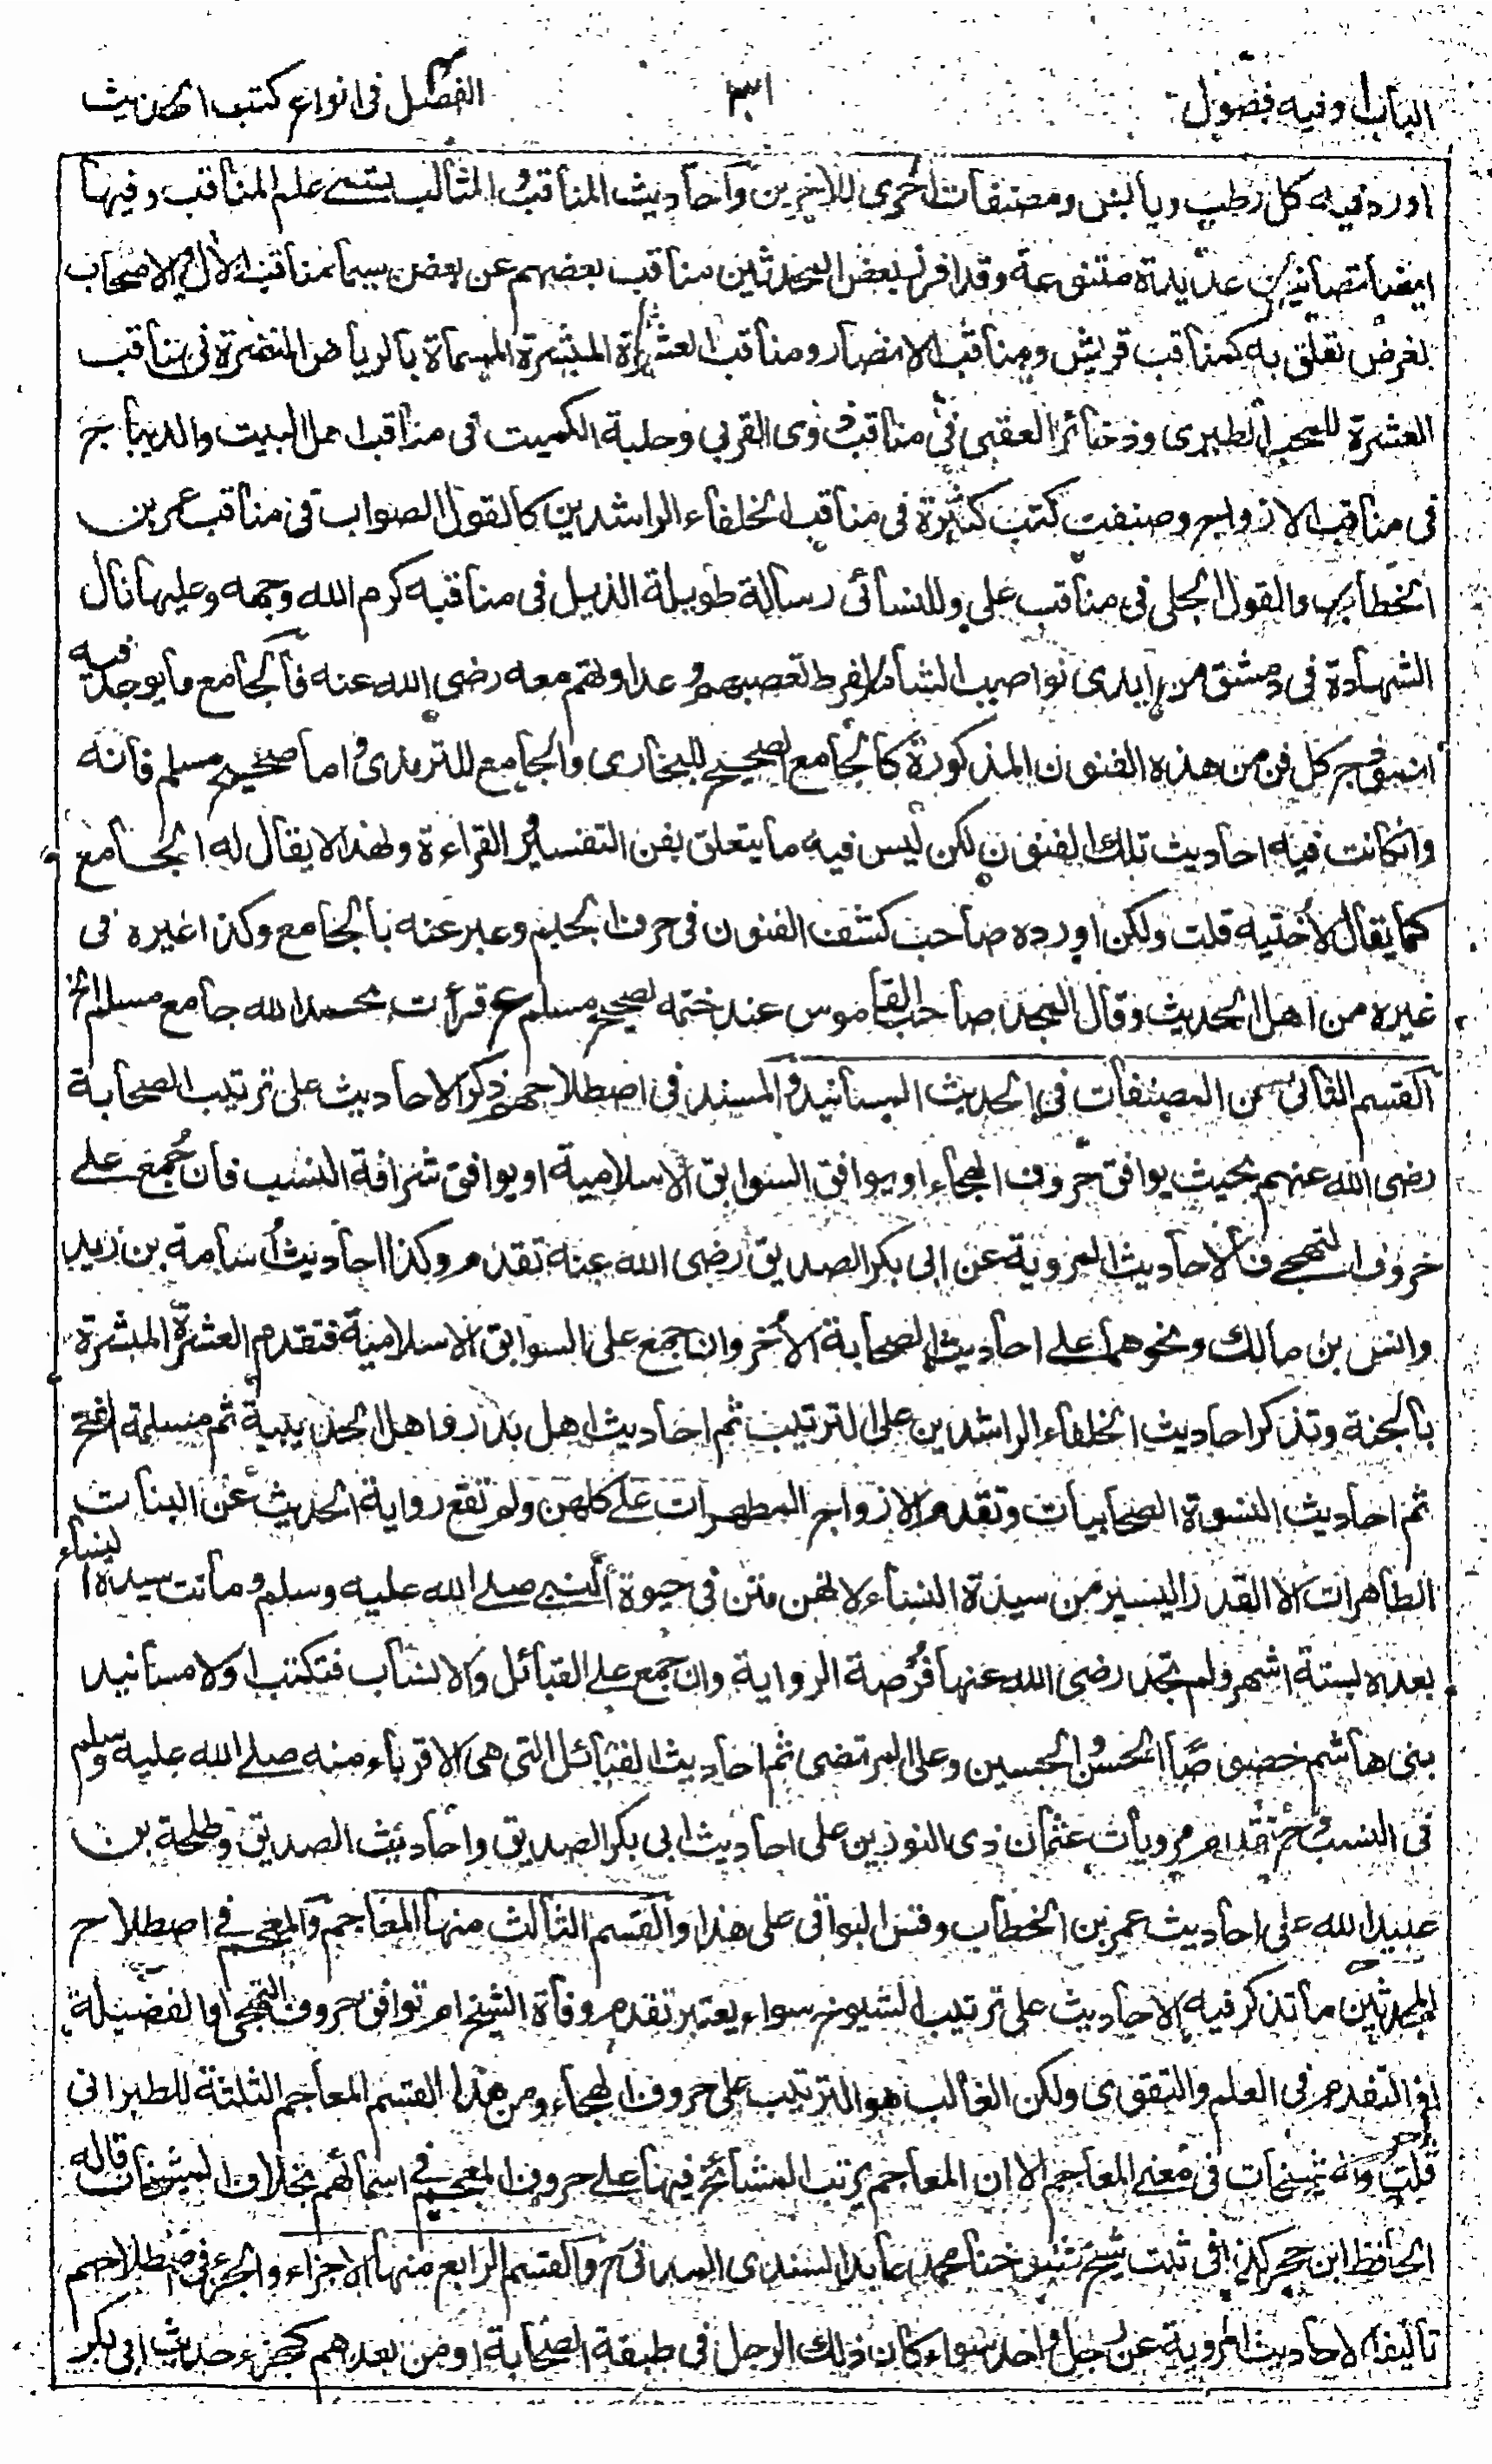 الباب ا وفيه فصول ٣١ الفصل في انواع كتب الحديث
اورد فيه كل رطب ويابس ومصنفات اخرى للاخرين واحاديث المناقب والمثالب يسمى علم المناقب وفيها
ايضا تصانيف عديدة متنوعة وقد افرز بعض المحدثين مناقب بعضهم عن بعض سيما مناقب الال والاصحاب
لغرض تعلق به كمناقب قريش ومناقب الانصار ومناقب العشرة المبشرة المسماة بالرياض النضرة في مناقب
العشرة للمحب الطبرى وذخائر العقبى في مناقب ذوى القربى وحلية الكميت في مناقب اهل البيت والديباج
في مناقب الازواج وصنفت كتب كثيرة في مناقب الخلفاء الراشدين كالقول الصواب في مناقب عمر بن
الخطاب والقول الجلى في مناقب على وللنسائى رسالة طويلة الذيل في مناقبه كرم الله وجهه وعليها نال
الشهادة في دمشق من ايدى نواصب الشام لفرط تعصبهم وعداوتهم معه رضى الله عنه فالجامع ما يوجد فيه
انموذج كل فن من هذه الفنون المذكورة كالجامع الصحيح للبخارى والجامع للترمذى واما صحيح مسلم فانه
وانكانت فيه احاديث تلك الفنون لكن ليس فيه ما يتعلق بفن التفسير والقراءة ولهذا لا يقال له الجامع
كما يقال لاختيه قلت ولكن اورده صاحب كشف الفنون في حرف الجيم وعبر عنه بالجامع وكذا غيره في
غيره من اهل الحديث وقال المجد صاحب القاموس عند ختمه لصحيح مسلم ع قرأت بحمد الله جامع مسلم الخ
القسم الثانى من المصنفات في الحديث المسانيد والمسند في اصطلاحهم ذكر الاحاديث على ترتيب الصحابة
رضى الله عنهم بحيث يوافق حروف الهجاء او يوافق السوابق الاسلامية او يوافق شرافة النسب فان جمع على
حروف التهجى فالاحاديث المروية عن ابى بكر الصديق رضى الله عنه تقدم وكذا احاديث اسامة بن زيد
وانس بن مالك ونحوهما على احاديث الصحابة الأخر وان جمع على السوابق الاسلامية فتقدم العشرة المبشرة
بالجنة وتذكر احاديث الخلفاء الراشدين على الترتيب ثم احاديث اهل بدر واهل الحديبية ثم مسلمة الفتح
ثم احاديث النسوة الصحابيات وتقدم الازواج المطهرات على كلهن ولم تقع رواية الحديث عن البنات
الطاهرات الا القدر اليسير من سيدة النساء لانهن متن في حيوة النبى صلى الله عليه وسلم وماتت سيدة النساء
بعده بستة اشهر ولم تجد رضى الله عنها فرصة الرواية وان جمع على القبائل والانساب فتكتب اولا مسانيد
بنى هاشم خصوصا الحسن والحسين وعلى المرتضى ثم احاديث القبائل التى هى الاقرباء منه صلى الله عليه وسلم
في النسب وح تقدم مرويات عثمان ذى النورين على احاديث ابى بكر الصديق واحاديث الصديق وطلحة بن
عبيد الله على احاديث عمر بن الخطاب وقس البواقى على هذا والقسم الثالث منها المعاجم والمعجم في اصطلاح
المحدثين ما تذكر فيه الاحاديث على ترتيب الشيوخ سواء يعتبر تقدم وفاة الشيخ ام توافق حروف التهجى او الفضيلة
او التقدم في العلم والتقوى ولكن الغالب هو الترتيب على حروف الهجاء ومن هذا القسم المعاجم الثلثة للطبرانى
قلت والمشيخات في معنى المعاجم الا ان المعاجم يرتب المشائخ فيها على حروف المعجم في اسمائهم بخلاف المشيخات قاله
الحافظ ابن حجر كذا في ثبت شيخ شيوخنا محمد عابد السندى المدنى رح والقسم الرابع منها الاجزاء والجزء في اصطلاحهم
تاليف الاحاديث المروية عن رجل واحد سواء كان ذلك الرجل في طبقة الصحابة او من بعدهم كجزء حديث ابى بكر